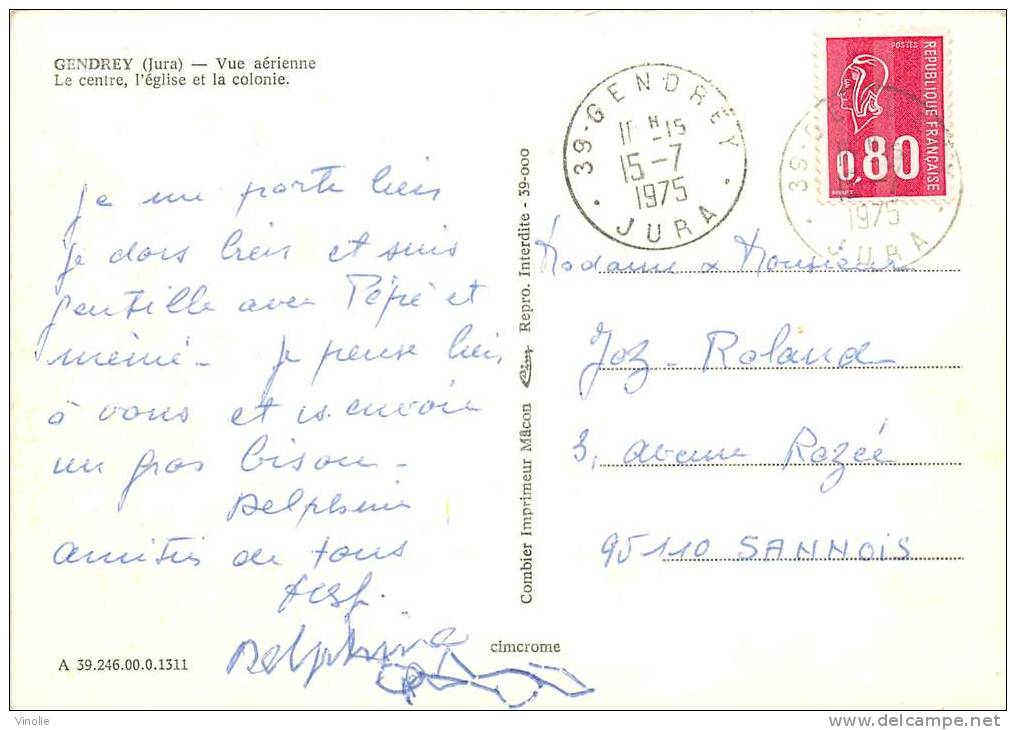 GENDREY (Jura) — Vue aérienne
Le centre, l'église et la colonie.
Je me porte bien
je dors bien et suis
gentille avec Pépé et
mémé - Je pense bien
à vous et vs envoie
un gros bisou -
Delphine
amitiés de tous
Delphine
A 39.246.00.0.1311
cimcrome
Combier Imprimeur Mâcon Cim Repro. Interdite - 39-000
39-GENDREY
15-7
1975
JURA
POSTES
REPUBLIQUE FRANÇAISE
0,80
39-GE
1975
JURA
Madame & Monsieur
Joz - Roland
3, avenue Rozée
95110 SANNOIS
Vinolie
delcampe.net